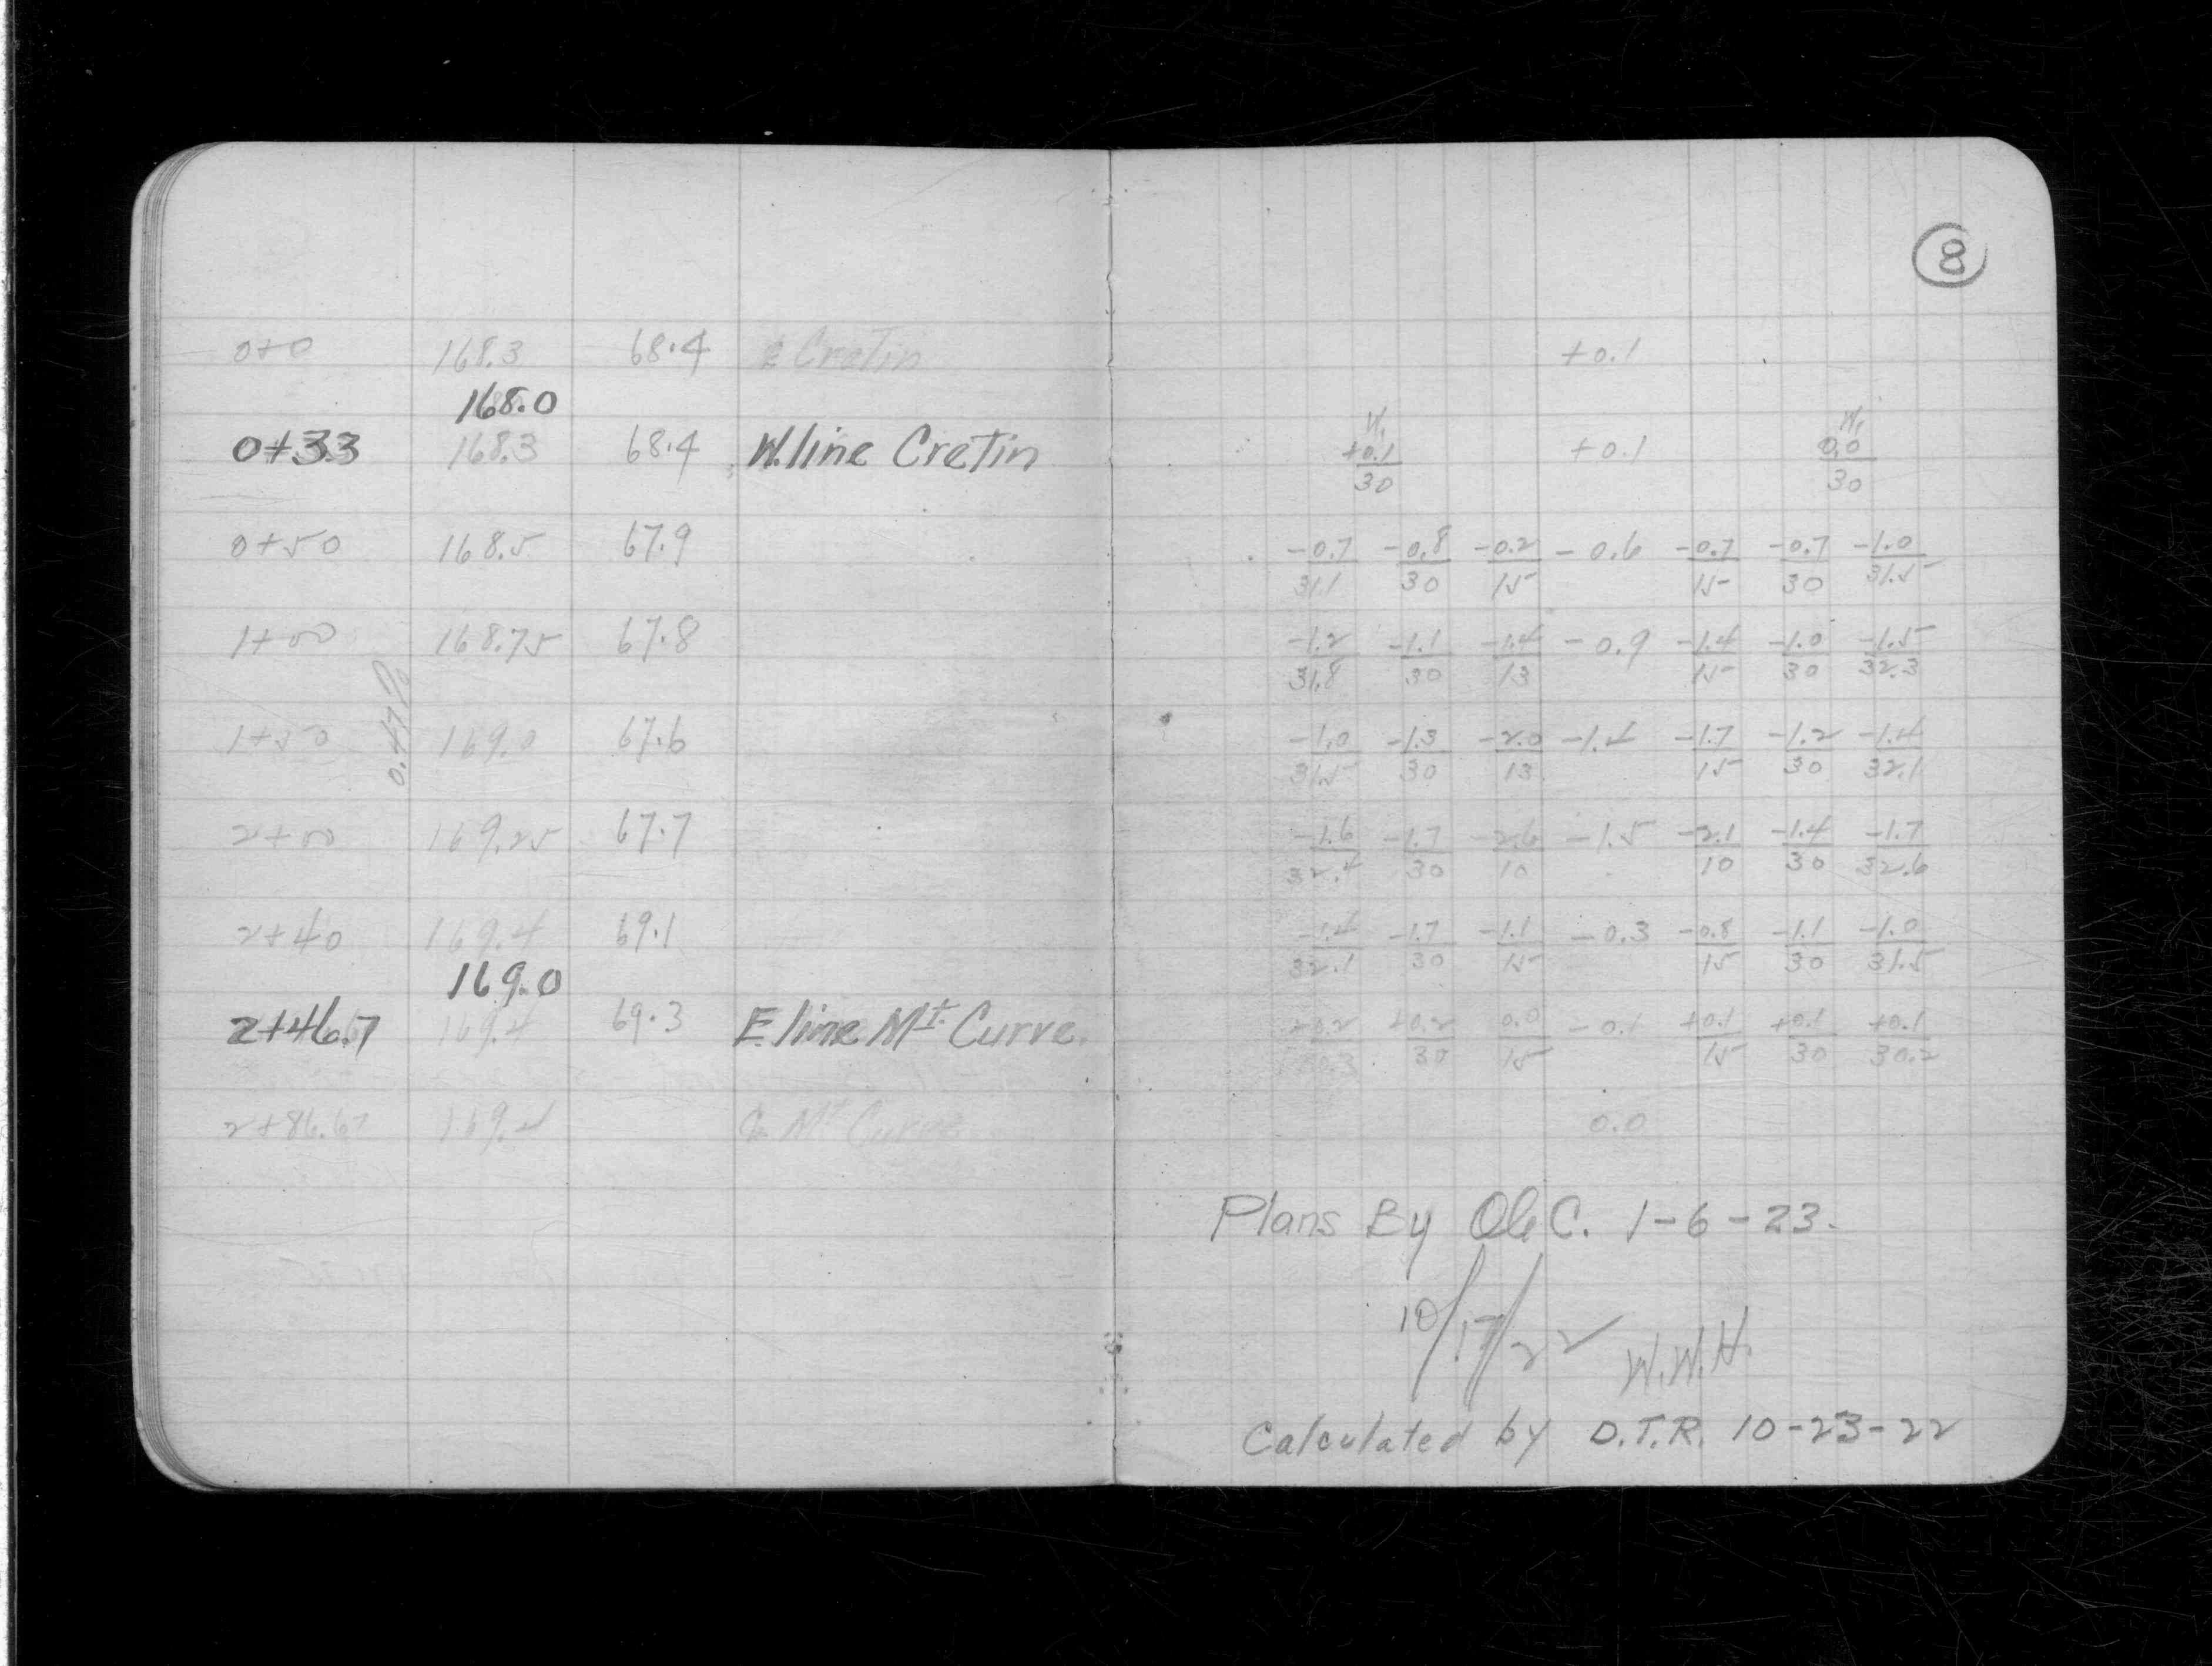 8
0+0 168.3 68.4 ℄ Cretin +0.1
168.0 W. W.
0+33 168.3 68.4 W. line Cretin +0.1/30 +0.1 0.0/30
0+50 168.5 67.9 -0.7/31.1 -0.8/30 -0.2/15 -0.6 -0.7/15 -0.7/30 -1.0/31.5
1+00 168.75 67.8 -1.2/31.8 -1.1/30 -1.4/13 -0.9 -1.4/15 -1.0/30 -1.5/32.3
0.47%
1+50 169.0 67.6 -1.0/31.5 -1.3/30 -2.0/13 -1.4 -1.7/15 -1.2/30 -1.4/32.1
2+00 169.25 67.7 -1.6/32.4 -1.7/30 -2.6/10 -1.5 -2.1/10 -1.4/30 -1.7/32.6
2+40 169.4 69.1 -1.4/32.1 -1.7/30 -1.1/15 -0.3 -0.8/15 -1.1/30 -1.0/31.5
169.0
2+46.7 169.4 69.3 E. line Mt. Curve. +0.2/30.3 +0.2/30 0.0/15 -0.1 +0.1/15 +0.1/30 +0.1/30.2
2+86.67 169.4 ℄ Mt Curve 0.0
Plans By C. 1-6-23.
10/17/22 W.W.H.
Calculated by D.T.R. 10-23-22